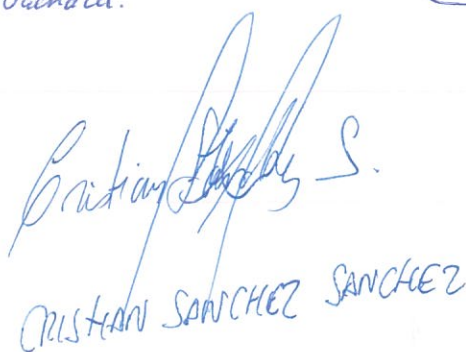 Cristian Sanchez S.
CRISTIAN SANCHEZ SANCHEZ